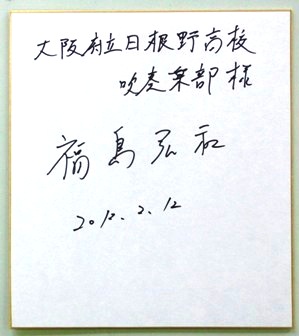 大阪府立日根野高校
吹奏楽部様
福島弘和
2010.2.12